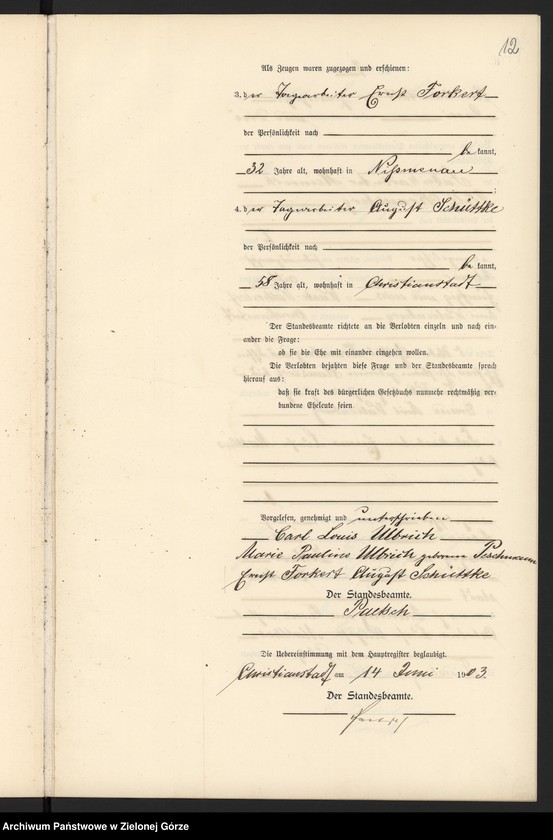 12
Als Zeugen waren zugezogen und erschienen:
3. der Tagearbeiter Ernst Torkert
der Persönlichkeit nach
be kannt,
32 Jahre alt, wohnhaft in
4. der Tagearbeiter August Schüttke
der Persönlichkeit nach
be kannt,
58 Jahre alt, wohnhaft in Christianstadt
Der Standesbeamte richtete an die Verlobten einzeln und nach ein-
ander die Frage:
ob sie die Ehe mit einander eingehen wollen.
Die Verlobten bejahten diese Frage und der Standesbeamte sprach
hierauf aus:
daß sie kraft des bürgerlichen Gesetzbuchs nunmehr rechtmäßig ver-
bundene Eheleute seien
Vorgelesen, genehmigt und unterschrieben
Carl Louis Ulbrich
Marie Pauline Ulbrich geborene Peschmann
Ernst Torkert August Schüttke
Der Standesbeamte.
Paetsch
Die Uebereinstimmung mit dem Hauptregister beglaubigt.
Christianstadt am 14 Juni 1903.
Der Standesbeamte.
Archiwum Państwowe w Zielonej Górze